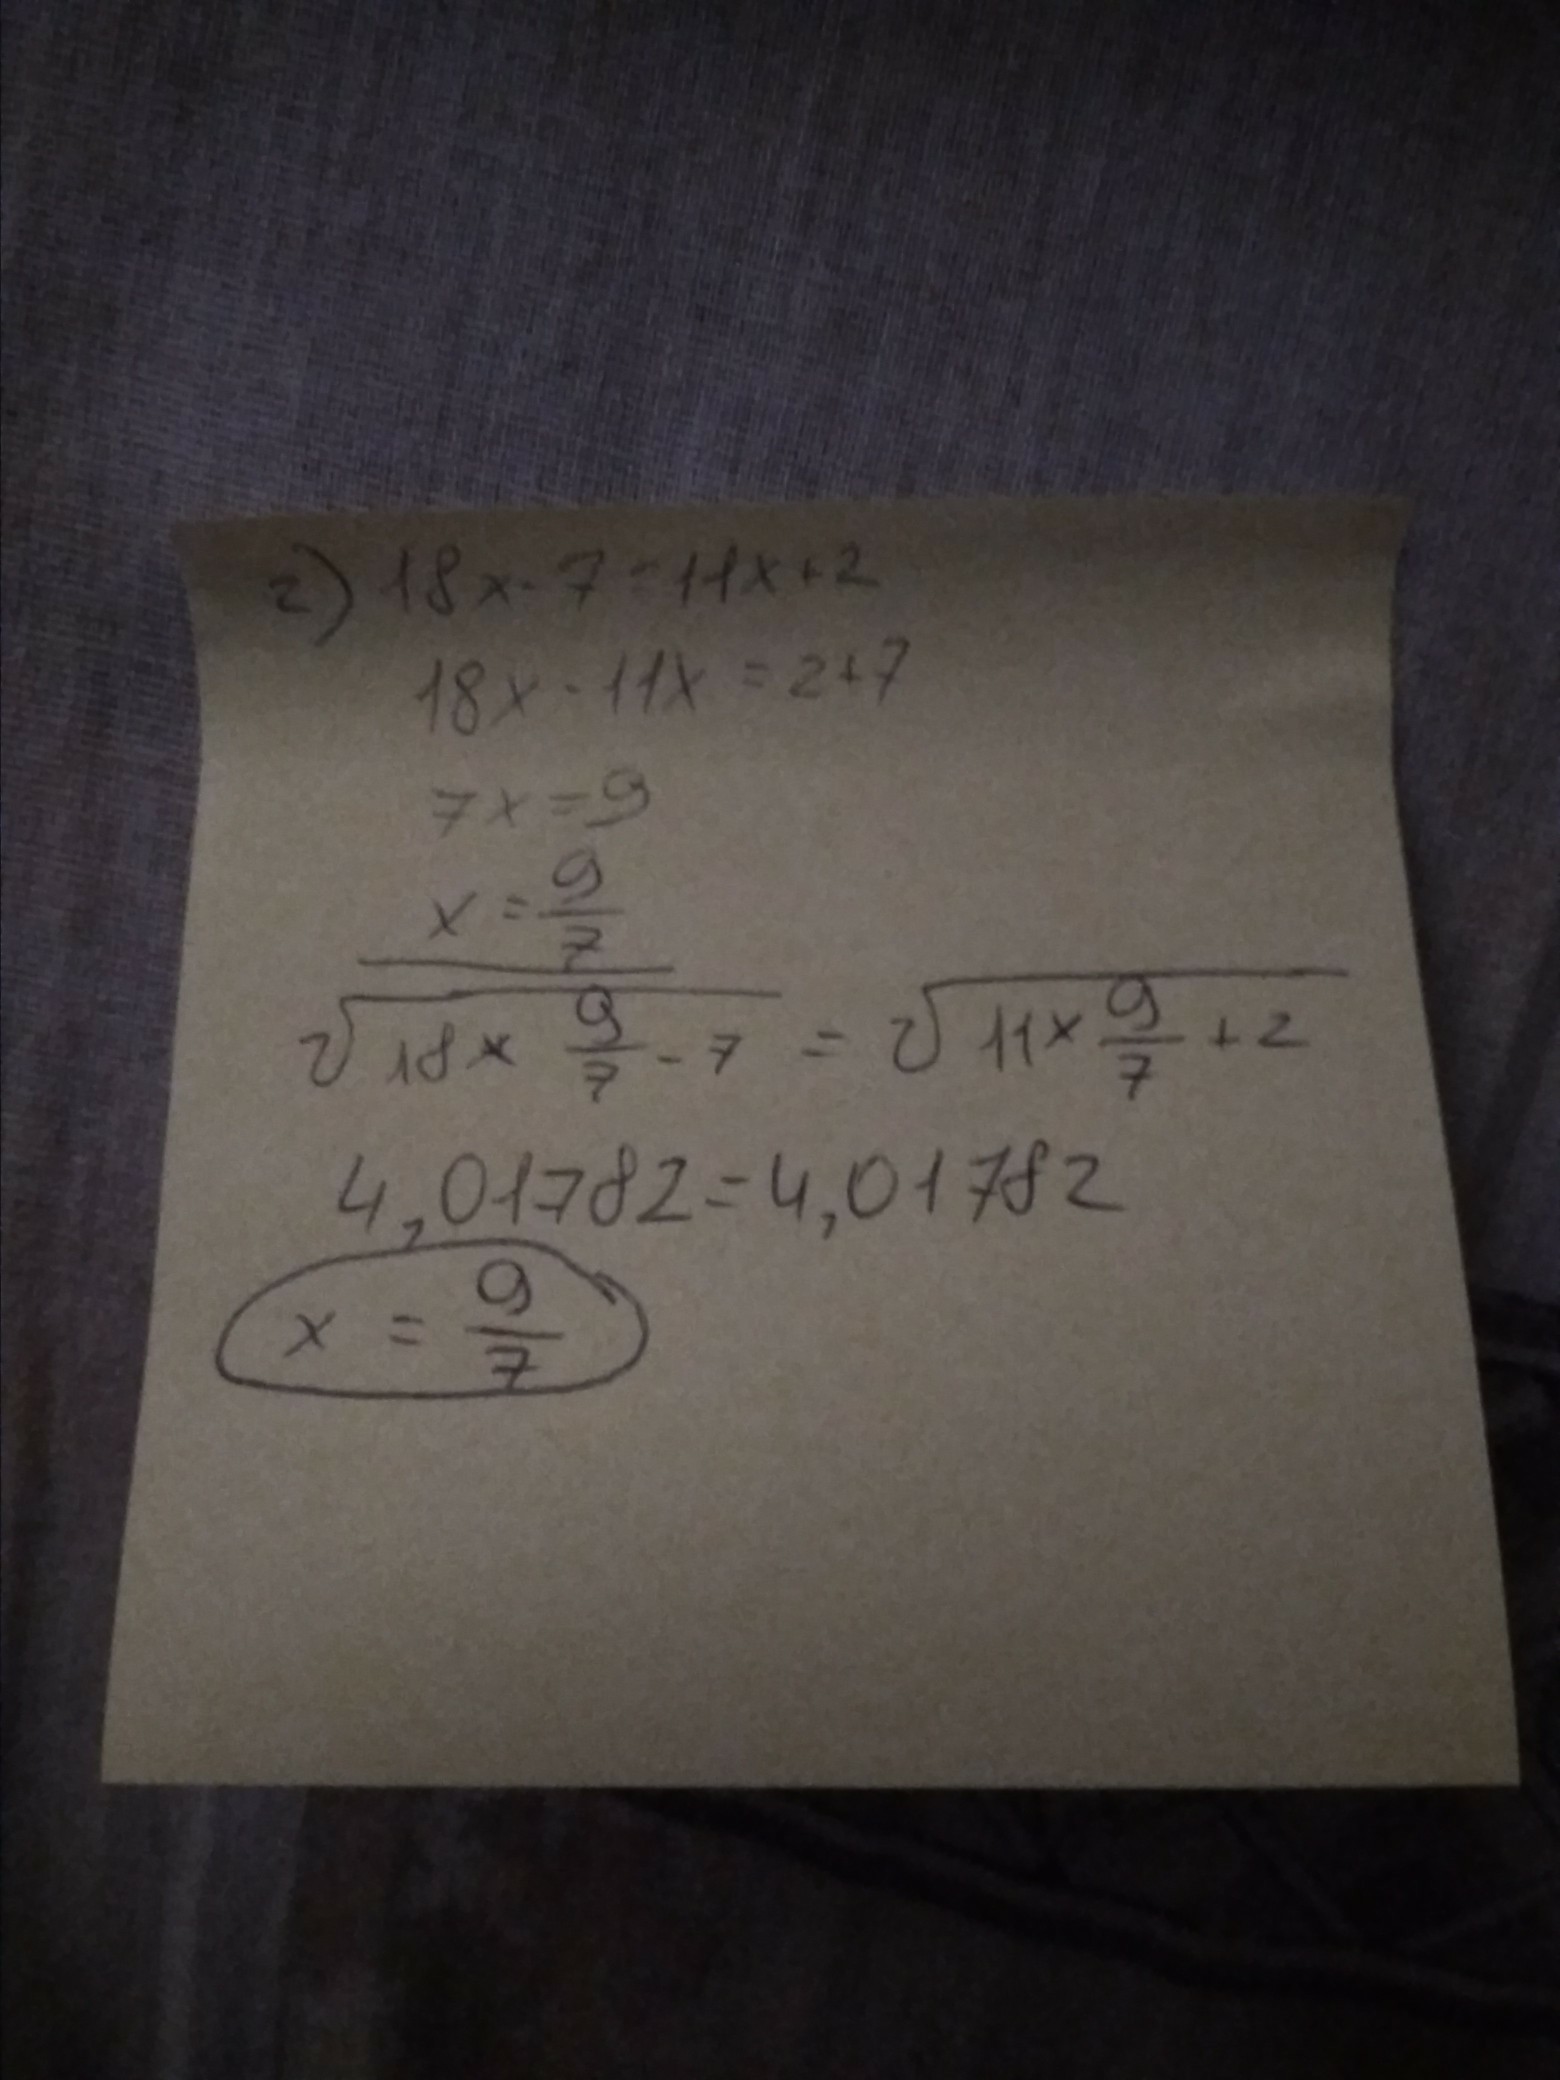 2) 18x-7=11x+2
18x-11x=2+7
7x=9
x=9/7
√18x 9/7 -7 = √11x 9/7 +2
4,01782=4,01782
x = 9/7